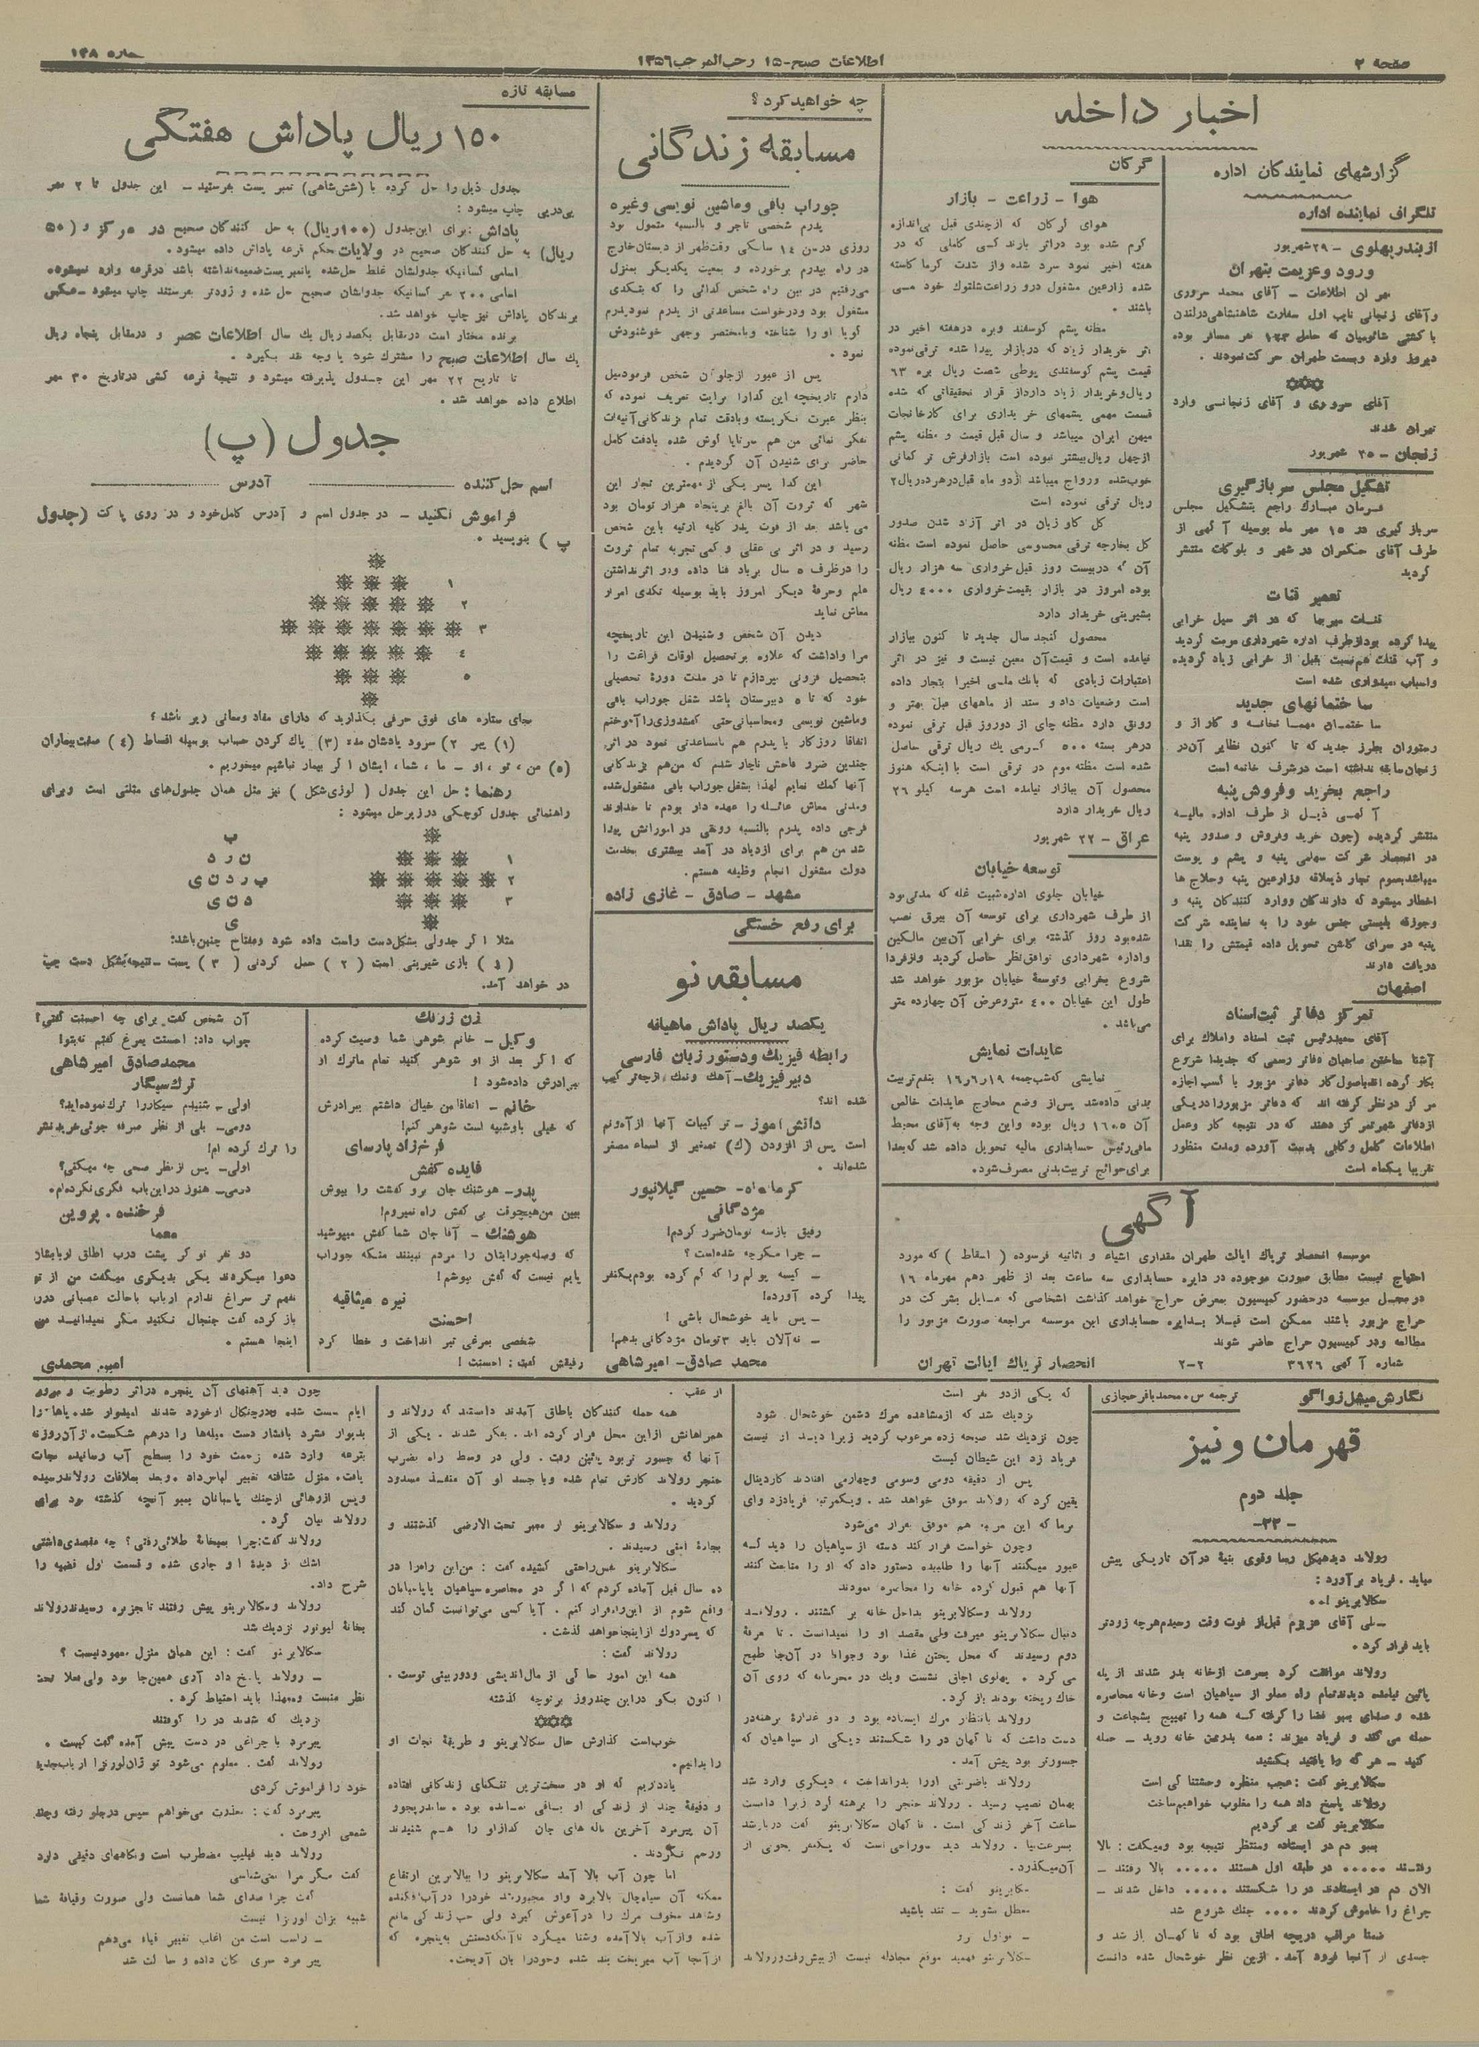 صفحه ۲
اطلاعات صبح - ۱۵ رجب‌المرجب ۱۳۵۶
شماره ۱۳۸
اخبار داخله
گزارشهای نمایندگان اداره
تلگراف نماینده اداره
از بندر پهلوی - ۲۹ شهریور
ورود و عزیمت بتهران
تهران اطلاعات - آقای محمد سروری
وآقای زنجانی نایب اول سفارت شاهنشاهی درلندن
آقای سروری و آقای زنجانی وارد
تهران شدند
زنجان - ۲۵ شهریور
تشکیل مجلس سربازگیری
فرمان مبارک راجع بتشکیل مجلس
سرباز گیری در ۱۵ مهر ماه بوسیله آگهی از
طرف آقای حکمران در شهر و بلوکات منتشر
گردید
تعمیر قنات
قنات میربها که در اثر سیل خرابی
پیدا کرده بود از طرف اداره شهرداری مرمت گردید
و آب قنات هم نسبت بقبل از خرابی زیاد گردیده
واسباب امیدواری شده است
ساختمانهای جدید
ساختمان مهمانخانه و کاراژ و
رستوران بطرز جدید که تا کنون نظایر آن در
زنجان سابقه نداشته است در شرف خاتمه است
راجع بخرید و فروش پنبه
آگهی ذیل از طرف اداره مالیه
منتشر گردیده (چون خرید و فروش و صدور پنبه
در انحصار شرکت سهامی پنبه و پشم و پوست
میباشد بعموم تجار ذیعلاقه و زارعین پنبه و حلاج ها
اخطار میشود که دارندگان و وارد کنندگان پنبه و
وجوزقه بایستی جنس خود را به نماینده شرکت
پنبه در سرای کاشن تحویل داده قیمتش را نقدا
دریافت دارند
اصفهان
تمرکز دفاتر ثبت اسناد
آقای سعید رئیس ثبت اسناد و املاک برای
آشنا ساختن صاحبان دفاتر رسمی که جدیدا شروع
بکار کرده اند باصول کار دفاتر مزبور با کسب اجازه
مرکز در نظر گرفته اند که دفاتر مزبور را در یکی
از دفاتر شهر تمرکز دهند که در نتیجه کار و عمل
اطلاعات کامل و کافی بدست آورده و مدت منظور
تقریبا یکماه است
گرگان
هوا - زراعت - بازار
هوای گرگان که از چندی قبل بی‌اندازه
گرم شده بود در اثر بارندگی کاملی که در
هفته اخیر نمود سرد شده و از شدت گرما کاسته
شده زارعین مشغول درو زراعت شلتوک خود می
باشند .
مظنه پشم گوسفند و بره در هفته اخیر در
اثر خریدار زیاد که در بازار پیدا شده ترقی نموده
قیمت پشم گوسفندی پوطی شصت ریال بره ۶۳
ریال و خریدار زیاد دارد از قرار تحقیقاتی که شده
قسمت مهمی پشمهای خریداری برای کارخانجات
میهن ایران میباشد و سال قبل قیمت و مظنه پشم
از چهل ریال بیشتر نبوده است بازار فرش ترکمانی
خوب شده و رواج میباشد از دو ماه قبل در هر ذرع ۲
ریال ترقی نموده است
کل گاو زبان در اثر آزاد شدن صدور
کل بخارجه ترقی محسوسی حاصل نموده است مظنه
آن که در بیست روز قبل خرواری سه هزار ریال
بوده امروز در بازار بقیمت خرواری ۴۰۰۰ ریال
بشیرینی خریدار دارد
محصول کنجد سال جدید تا کنون ببازار
نیامده است و قیمت آن معین نیست و نیز در اثر
اعتبارات زیادی که بانک ملی اخیرا بتجار داده
است وضعیات داد و ستد از ماههای قبل بهتر و
رونق دارد مظنه چای از دو روز قبل ترقی نموده
در هر بسته ۵۰۰ گرمی یک ریال ترقی حاصل
شده است مظنه موم در ترقی است با اینکه هنوز
محصول آن ببازار نیامده است هر سه کیلو ۲۶
ریال خریدار دارد
عراق - ۲۲ شهریور
توسعه خیابان
خیابان جلوی اداره تثبیت غله که مدتی بود
از طرف شهرداری برای توسعه آن بیرق نصب
شده بود روز گذشته برای خرابی آن بین مالکین
و اداره شهرداری توافق نظر حاصل گردید و از فردا
شروع بخرابی و توسعه خیابان مزبور خواهد شد
طول این خیابان ۴۰۰ متر و عرض آن چهارده متر
می‌باشد .
عایدات نمایش
نمایشی که شب جمعه ۱۶٫۶٫۱۹ بنفع تربیت
بدنی داده شد پس از وضع مخارج عایدات خالص
آن ۱۶۰۵ ریال بوده و این وجه به آقای محیط
مافی رئیس حسابداری مالیه تحویل داده شد که بعدا
برای حوائج تربیت بدنی مصرف شود.
آگهی
موسسه انحصار تریاک ایالت طهران مقداری اشیاء و اثاثیه فرسوده (اسقاط) که مورد
احتیاج نیست مطابق صورت موجوده در دایره حسابداری سه ساعت بعد از ظهر دهم مهرماه ۱۶
در محل موسسه در حضور کمیسیون بمعرض حراج خواهد گذاشت اشخاصی که مایل بشرکت در
حراج مزبور باشند ممکن است قبلا بدایره حسابداری این موسسه مراجعه صورت مزبور را
مطالعه و در کمیسیون حراج حاضر شوند
شماره آگهی ۳۶۲۶
۲-۲
انحصار تریاک ایالت تهران
چه خواهید کرد ؟
مسابقه زندگانی
جوراب بافی و ماشین نویسی و غیره
پدرم شخصی تاجر و بالنسبه متمول بود
روزی در سن ۱۴ سالگی وقت ظهر از دبستان خارج
در راه بپدرم برخورده و بمعیت یکدیگر بمنزل
می‌رفتیم در بین راه شخص گدائی را که بتکدی
مشغول بود و درخواست مساعدتی از پدرم نمود پدرم
گویا او را شناخته و با مختصر وجهی خوشنودش
نمود .
پس از عبور از جلو آن شخص فرمود میل
دارم تاریخچه این گدا را برایت تعریف نموده که
بنظر عبرت نگریسته و بادقت تمام بزندگانی آتیه‌ات
فکر نمائی من هم سر تا پا گوش شده بادقت کامل
حاضر برای شنیدن آن گردیدم .
این گدا پسر یکی از مهمترین تجار این
شهر که ثروت آن بالغ بر پنجاه هزار تومان بود
می باشد بعد از فوت پدر کلیه ارثیه باین شخص
رسید و در اثر بی عقلی و کمی تجربه تمام ثروت
را در ظرف ۵ سال بر باد فنا داده و در اثر نداشتن
علم و حرفهٔ دیگر امروز باید بوسیله تکدی امرار
معاش نماید
دیدن آن شخص و شنیدن این تاریخچه
مرا واداشت که علاوه بر تحصیل اوقات فراغت را
بتحصیل فزونی بپردازم تا در مدت دورهٔ تحصیلی
خود که تا ۵ دبیرستان باشد شغل جوراب بافی
و ماشین نویسی و محاسباتی حتی کفشدوزی را آموختم
اتفاقا روزگار با پدرم هم نامساعدتی نمود در اثر
چندین ضرر فاحش ناچار شدم که من هم بزندگانی
آنها کمک نمایم لهذا بشغل جوراب بافی مشغول شده
و مدتی معاش عائله را عهده دار بودم تا خداوند
فرجی داده پدرم بالنسبه رونقی در امورانش پیدا
شد من هم برای ازدیاد در آمد بیشتری بخدمت
دولت مشغول انجام وظیفه هستم .
مشهد - صادق - غازی زاده
برای رفع خستگی
مسابقه نو
یکصد ریال پاداش ماهیانه
رابطه فیزیک و دستور زبان فارسی
دبیر فیزیک - آهک و نمک از چه ترکیب
شده اند؟
دانش آموز - ترکیبات آنها از آه و نم
است پس از افزودن (ک) تصغیر از اسماء مصغر
شده‌اند .
کرمانشاه - حسین گیلانپور
مژدگانی
رفیق بازسه تومان ضرر کردم!
- چرا مگر چه شده است ؟
- کیسه پولم را که گم کرده بودم یکنفر
پیدا کرده آورده!
- پس باید خوشحال باشی !
- نه الان باید ۳ تومان مژدگانی بدهم!
محمد صادق - امیرشاهی
مسابقه تازه
۱۵۰ ریال پاداش هفتگی
جدول ذیل را حل کرده با (شش‌شاهی) تمبر پست بفرستید - این جدول تا ۲ مهر
پی‌درپی چاپ میشود :
پاداش : برای این جدول (۱۰۰ ریال) به حل کنندگان صحیح در مرکز و (۵۰
ریال) به حل کنندگان صحیح در ولایات بحکم قرعه پاداش داده میشود .
اسامی کسانیکه جدولشان غلط حل شده یا تمبر پست ضمیمه نداشته باشد در قرعه وارد نمیشود
اسامی ۲۰۰ نفر کسانیکه جدولشان صحیح حل شده و زودتر بفرستند چاپ میشود - عکس
برندگان پاداش نیز چاپ خواهد شد .
برنده مختار است در مقابل یکصد ریال یک سال اطلاعات عصر و در مقابل پنجاه ریال
یک سال اطلاعات صبح را مشترک شود یا وجه نقد بگیرد .
تا تاریخ ۲۲ مهر این جدول پذیرفته میشود و نتیجهٔ قرعه کشی در تاریخ ۳۰ مهر
اطلاع داده خواهد شد .
جدول (پ)
اسم حل کننده آدرس
فراموش نکنید - در جدول اسم و آدرس کامل خود و در روی پاکت (جدول
پ) بنویسید .
۱
۲
۳
۴
۵
بجای ستاره های فوق حرفی بگذارید که دارای مفاد و معانی زیر باشد ؛
(۱) ببر (۲) سرود یادشان مده (۳) پاک کردن حساب بوسیله اقساط (۴) صفت بیماران
(۵) من ، تو ، او - ما ، شما ، ایشان اگر بیمار نباشیم میخوریم .
رهنما : حل این جدول (لوزی شکل) نیز مثل همان جدول‌های مثلثی است و برای
راهنمائی جدول کوچکی در زیر حل میشود :
ب
۱ ن ر د
۲ ب ر د ن ی
۳ د ن ی
ی
مثلا اگر جدولی بشکل دست راست داده شود و مفتاح چنین باشد؛
(۱) بازی شیرینی است (۲) حمل کردنی (۳) پست - نتیجه بشکل دست چپ
در خواهد آمد.
زن زرنگ
وکیل - خانم شوهر شما وصیت کرده
که اگر بعد از او شوهر کنید تمام ماترک او
ببرادرش داده شود !
خانم - اتفاقا من خیال داشتم ببرادرش
که خیلی باو شبیه است شوهر کنم!
فرخزاد پارسای
فایده کفش
پدر - هوشنگ جان برو کفشت را بپوش
ببین من هیچوقت بی کفش راه نمیروم!
هوشنگ - آقا جان شما کفش میپوشید
که وصله جورابتان را مردم نبینند منکه جوراب
پایم نیست که کفش بپوشم!
نیره میثاقیه
احسنت
شخصی بمرغی تیر انداخت و خطا کرد
رفیقش گفت : احسنت !
آن شخص گفت برای چه احسنت گفتی!
جواب داد: احسنت بمرغ گفتم نه بتو!
محمد صادق امیرشاهی
ترک سیگار
اولی - شنیدم سیگار را ترک نموده‌اید؟
دومی - بلی از نظر صرفه جوئی خریدنش
را ترک کرده ام!
اولی - پس از نظر صحی چه میکنی؟
دومی - هنوز در این باب فکری نکرده‌ام .
فرخنده . پروین
معما
دو نفر نوکر پشت درب اطاق اربابشان
دعوا میکردند یکی بدیگری میگفت من از تو
نفهم تر سراغ ندارم ارباب باحالت عصبانی در را
باز کرده گفت جنجال نکنید مگر نمیدانید من
اینجا هستم .
امیر محمدی
نگارش میشل زواگو
ترجمه س . محمد باقر حجازی
قهرمان ونیز
جلد دوم
- ۲۲ -
رولاند دید هیکل رسا و قوی بنیهٔ در آن تاریکی پیش
میاید . فریاد برآورد :
سکالابرینو ! ..
- بلی آقای عزیزم قبل از فوت وقت رسیدم هر چه زودتر
باید فرار کرد .
رولاند موافقت کرد بسرعت از خانه بدر شدند از پله
پائین نیامده دیدند تمام راه مملو از سپاهیان است و خانه محاصره
شده و صدای بمبو فضا را گرفته که همه را تهییج بشجاعت و
حمله می کند و فریاد میزند : همه بدرون خانه روید - حمله
کنید - هر که را یافتید بکشید
سکالابرینو گفت : عجب منظره وحشتناکی است
رولاند پاسخ داد همه را مغلوب خواهیم ساخت
سکالابرینو گفت بر گردیم
بمبو دم در ایستاده و منتظر نتیجه بود و میگفت : بالا
رفتند ..... در طبقه اول هستند ..... بالا رفتند -
الان دم در ایستادند در را شکستند ..... داخل شدند -
چراغ را خاموش کردند .... جنگ شروع شد
ضمنا مراقب دریچه اطاق بود که ناگهان باز شد و
جسدی از آنجا فرود آمد . ازین نظر خوشحال شده دانست
که یکی از دو نفر است
نزدیک شد که از مشاهده مرگ دشمن خوشحال شود
چون نزدیک شد صیحه زده مرعوب گردید زیرا دید او نیست
فریاد زد این شیطان کیست
پس از دقیقه دومی و سومی و چهارمی افتادند کاردینال
یقین کرد که رولاند موفق خواهد شد . و یکمرتبه فریاد زد وای
بر ما که این مرتبه هم موفق بفرار می‌شود
و چون خواست فرار کند دسته از سپاهیان را دید که
عبور میکنند آنها را طلبیده دستور داد که او را متابعت کنند
آنها هم قبول کرده خانه را محاصره نمودند
رولاند و سکالابرینو بداخل خانه بر گشتند . رولاند
دنبال سکالابرینو میرفت ولی مقصد او را نمیدانست . تا غرفهٔ
دوم رسیدند که محل پختن غذا بود
خاک ریخته بودند باز کرد .
رولاند بانتظار مرگ ایستاده بود و دو غدارهٔ برهنه در
دست داشت که ناگهان در را شکستند و یکی از سپاهیان که
جسورتر بود پیش آمد .
رولاند باضربتی او را بدر انداخت ، دیگری وارد شد
بهمان نصیب رسید . رولاند خنجر را برهنه کرد زیرا دانست
ساعت آخر زندگی است . ناگهان سکالابرینو گفت
آن میگذرد .
سکالابرینو گفت :
معطل مشوید - تند باشید
سکالابرینو فهمید موقع مجادله نیست از پیش رفت و رولاند
از عقب .
همه حمله کنندگان باطاق آمدند دانستند که رولاند و
همراهانش از این محل فرار کرده اند . بفکر شدند . یکی از
آنها که جسور تر بود پائین رفت . ولی در وسط راه بضرب
خنجر رولاند کارش تمام شده و با جسد او آن منفذ مسدود
گردید .
رولاند و سکالابرینو از معبر تحت الارضی گذشتند و
بجادهٔ امنی رسیدند .
سکالابرینو نفس راحتی کشیده گفت : من این راه را در
ده سال قبل آماده کردم که اگر در محاصره سپاهیان یا پاسبانان
واقع شوم از این راه فرار کنم . آیا کسی می‌توانست گمان کند
که پسر دوک از اینجا خواهد گذشت .
رولاند گفت :
همه این امور حاکی از مال اندیشی و دوربینی توست .
اکنون بگو در این چند روز بر تو چه گذشته
خوب است گذارش حال سکالابرینو و طریقهٔ نجات او
را بدانیم .
یاد داریم که او در سخت‌ترین تنگنای زندگانی افتاده
و دقیقهٔ چند از زندگی او باقی نمانده بود .
آن پیر مرد آخرین ناله های جان گداز او را هم شنیدند
و رحم نکردند .
اما چون آب بالا آمد سکالابرینو را ببالاترین ارتفاع
ممکنه آن سیاه‌چال بالا برد و او مجبور شد خود را در آب افکنده
و شاهد مخوف مرگ را در آغوش گیرد ولی حب زندگی مانع
شده و از آب بالا آمده و شنا میکرد تا آنکه دستش به پنجره که
از آنجا آب میریخت بند شده و خود را بآن آویخت .
چون دید آهنهای آن پنجره در اثر رطوبت و مرور
ایام سست شده و در چنگال او خورد شدند امیدوار شد . پاها را
بدیوار فشرد بافشار دست میله‌ها را در هم شکست . از آن روزنه
بترعه وارد شده زحمت خود را بسطح آب رسانیده نجات
یافت . منزل شتافته تغییر لباس داد . و بعد بملاقات رولاند رسیده
و پس از رهائی از چنگ پاسبانان بمبو آنچه گذشته بود برای
رولاند بیان کرد .
رولاند گفت: چرا بمیخانهٔ طلائی رفتی ؟ چه مقصدی داشتی
اشک از دیدهٔ او جاری شده و قسمت اول قضیه را
شرح داد .
رولاند و سکالابرینو پیش رفتند تا جزیره رسیدند رولاند
بخانهٔ لیونور نزدیک شد
سکالابرینو گفت : این همان منزل معهود نیست ؟
- رولاند پاسخ داد آری همین جا بود ولی فعلا تحت
نظر منست و معهذا باید احتیاط کرد .
نزدیک که شدند در را کوفتند
پیر مرد با چراغی در دست پیش آمده گفت کیست .
رولاند گفت . معلوم می‌شود تو ژان لورنزا ارباب جدید
خود را فراموش کردی
پیر مرد گفت : معذرت می‌خواهم سپس در جلو رفته و چند
شمعی افروخت .
رولاند دید فیلیپ مضطرب است و نگاههای دقیقی دارد
گفت مگر مرا نمی‌شناسی
گفت چرا صدای شما همانست ولی صورت و قیافهٔ شما
شبیه بژان لورنزا نیست
- راست است من اغلب تغییر قیافه می‌دهم
پیر مرد سری تکان داده و ساکت شد